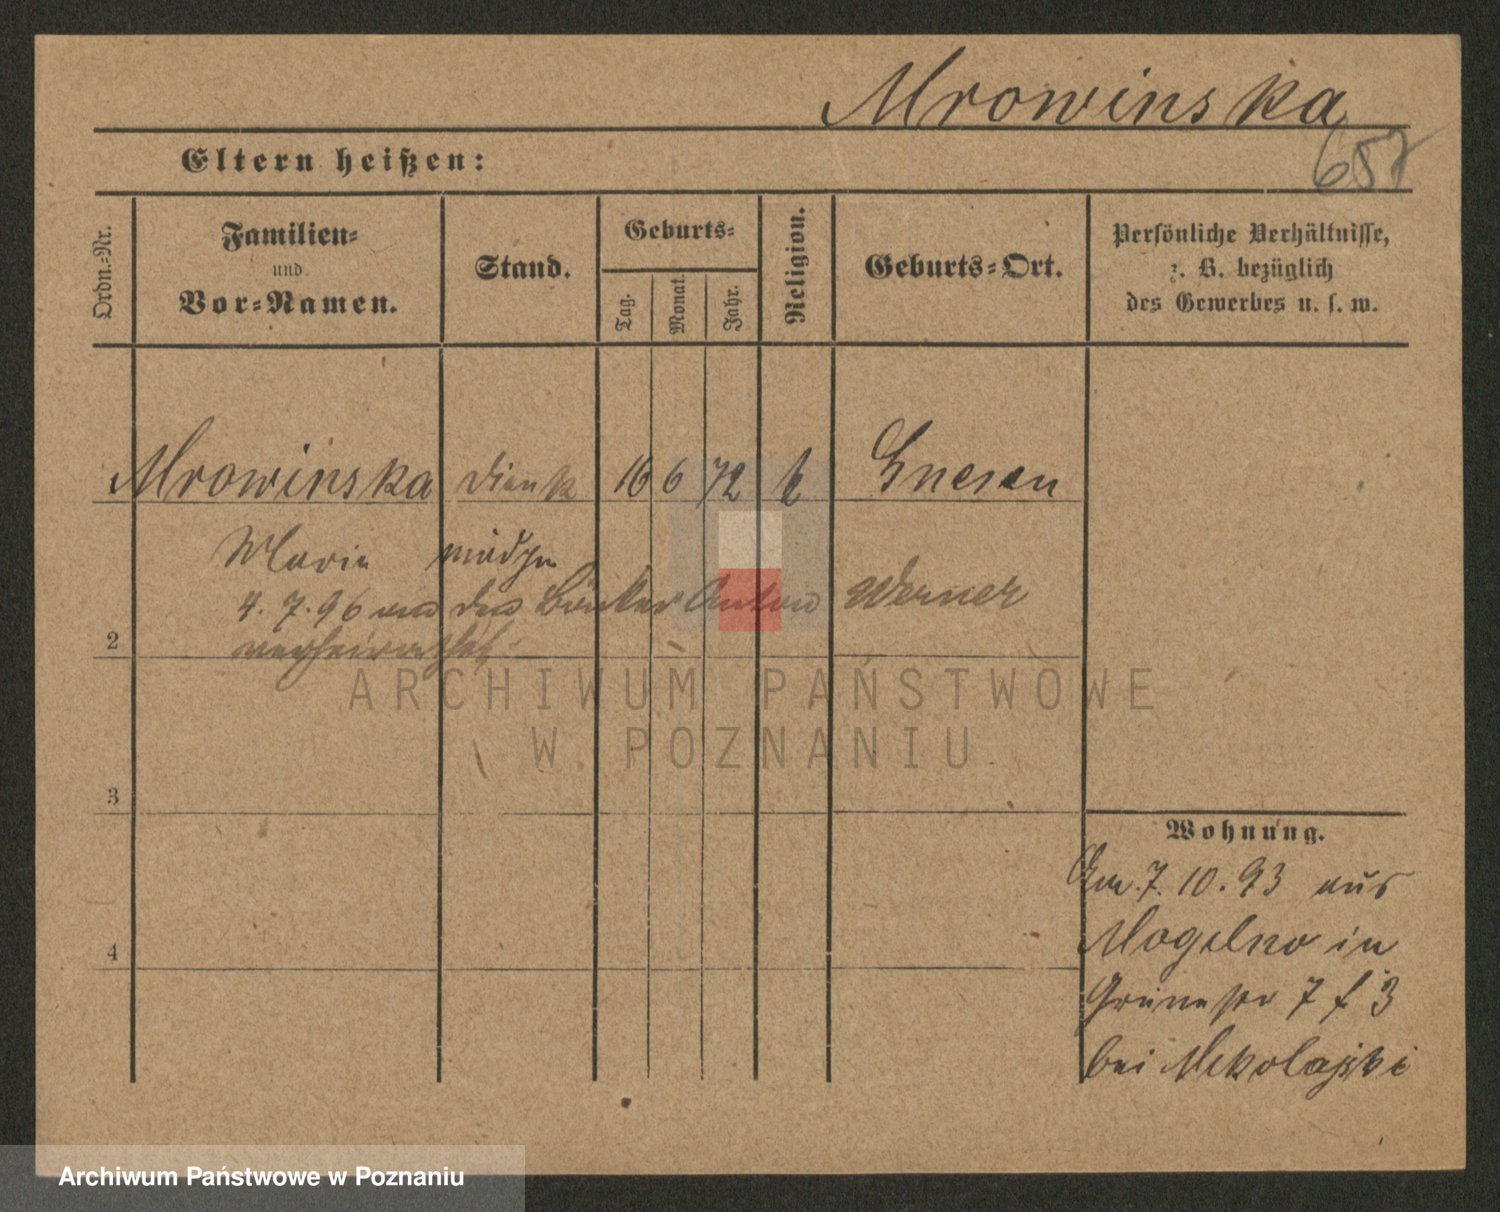 Mrowinska
Eltern heißen:
658
Ordn.-Nr.
Familien-
und
Vor-Namen.
Stand.
Geburts-
Tag.
Monat.
Jahr.
Religion.
Geburts-Ort.
Persönliche Verhältnisse,
z. B. bezüglich
des Gewerbes u. s. w.
Mrowinska dienst 16 6 72 k Gnesen
Marie mädchen
4. 7. 96 den Bäcker Anton Werner
2 verheirathet
ARCHIWUM PAŃSTWOWE
W POZNANIU
3
Wohnung.
7. 10. 93 aus
Mogilno in
4
Grünestr 7 f 3
bei Mikolajski
Archiwum Państwowe w Poznaniu